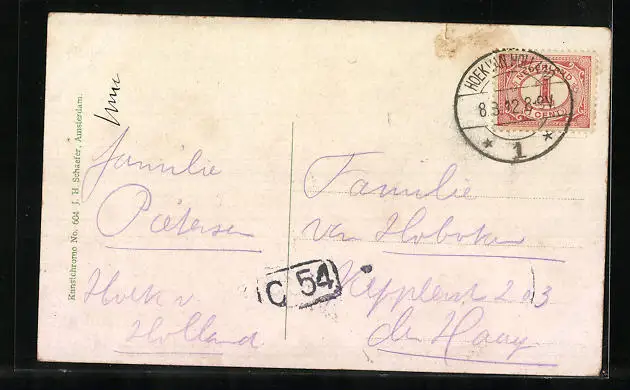 Kunstchromo No. 604 J. H. Schaefer, Amsterdam.
familie
Pietersen
Hoek v
Holland
HOEK VAN HOLLAND
8.3.12.8-9V
1
NEDERLAND
1
CENT
Familie
van Hoboken
203
den Haag
C 54